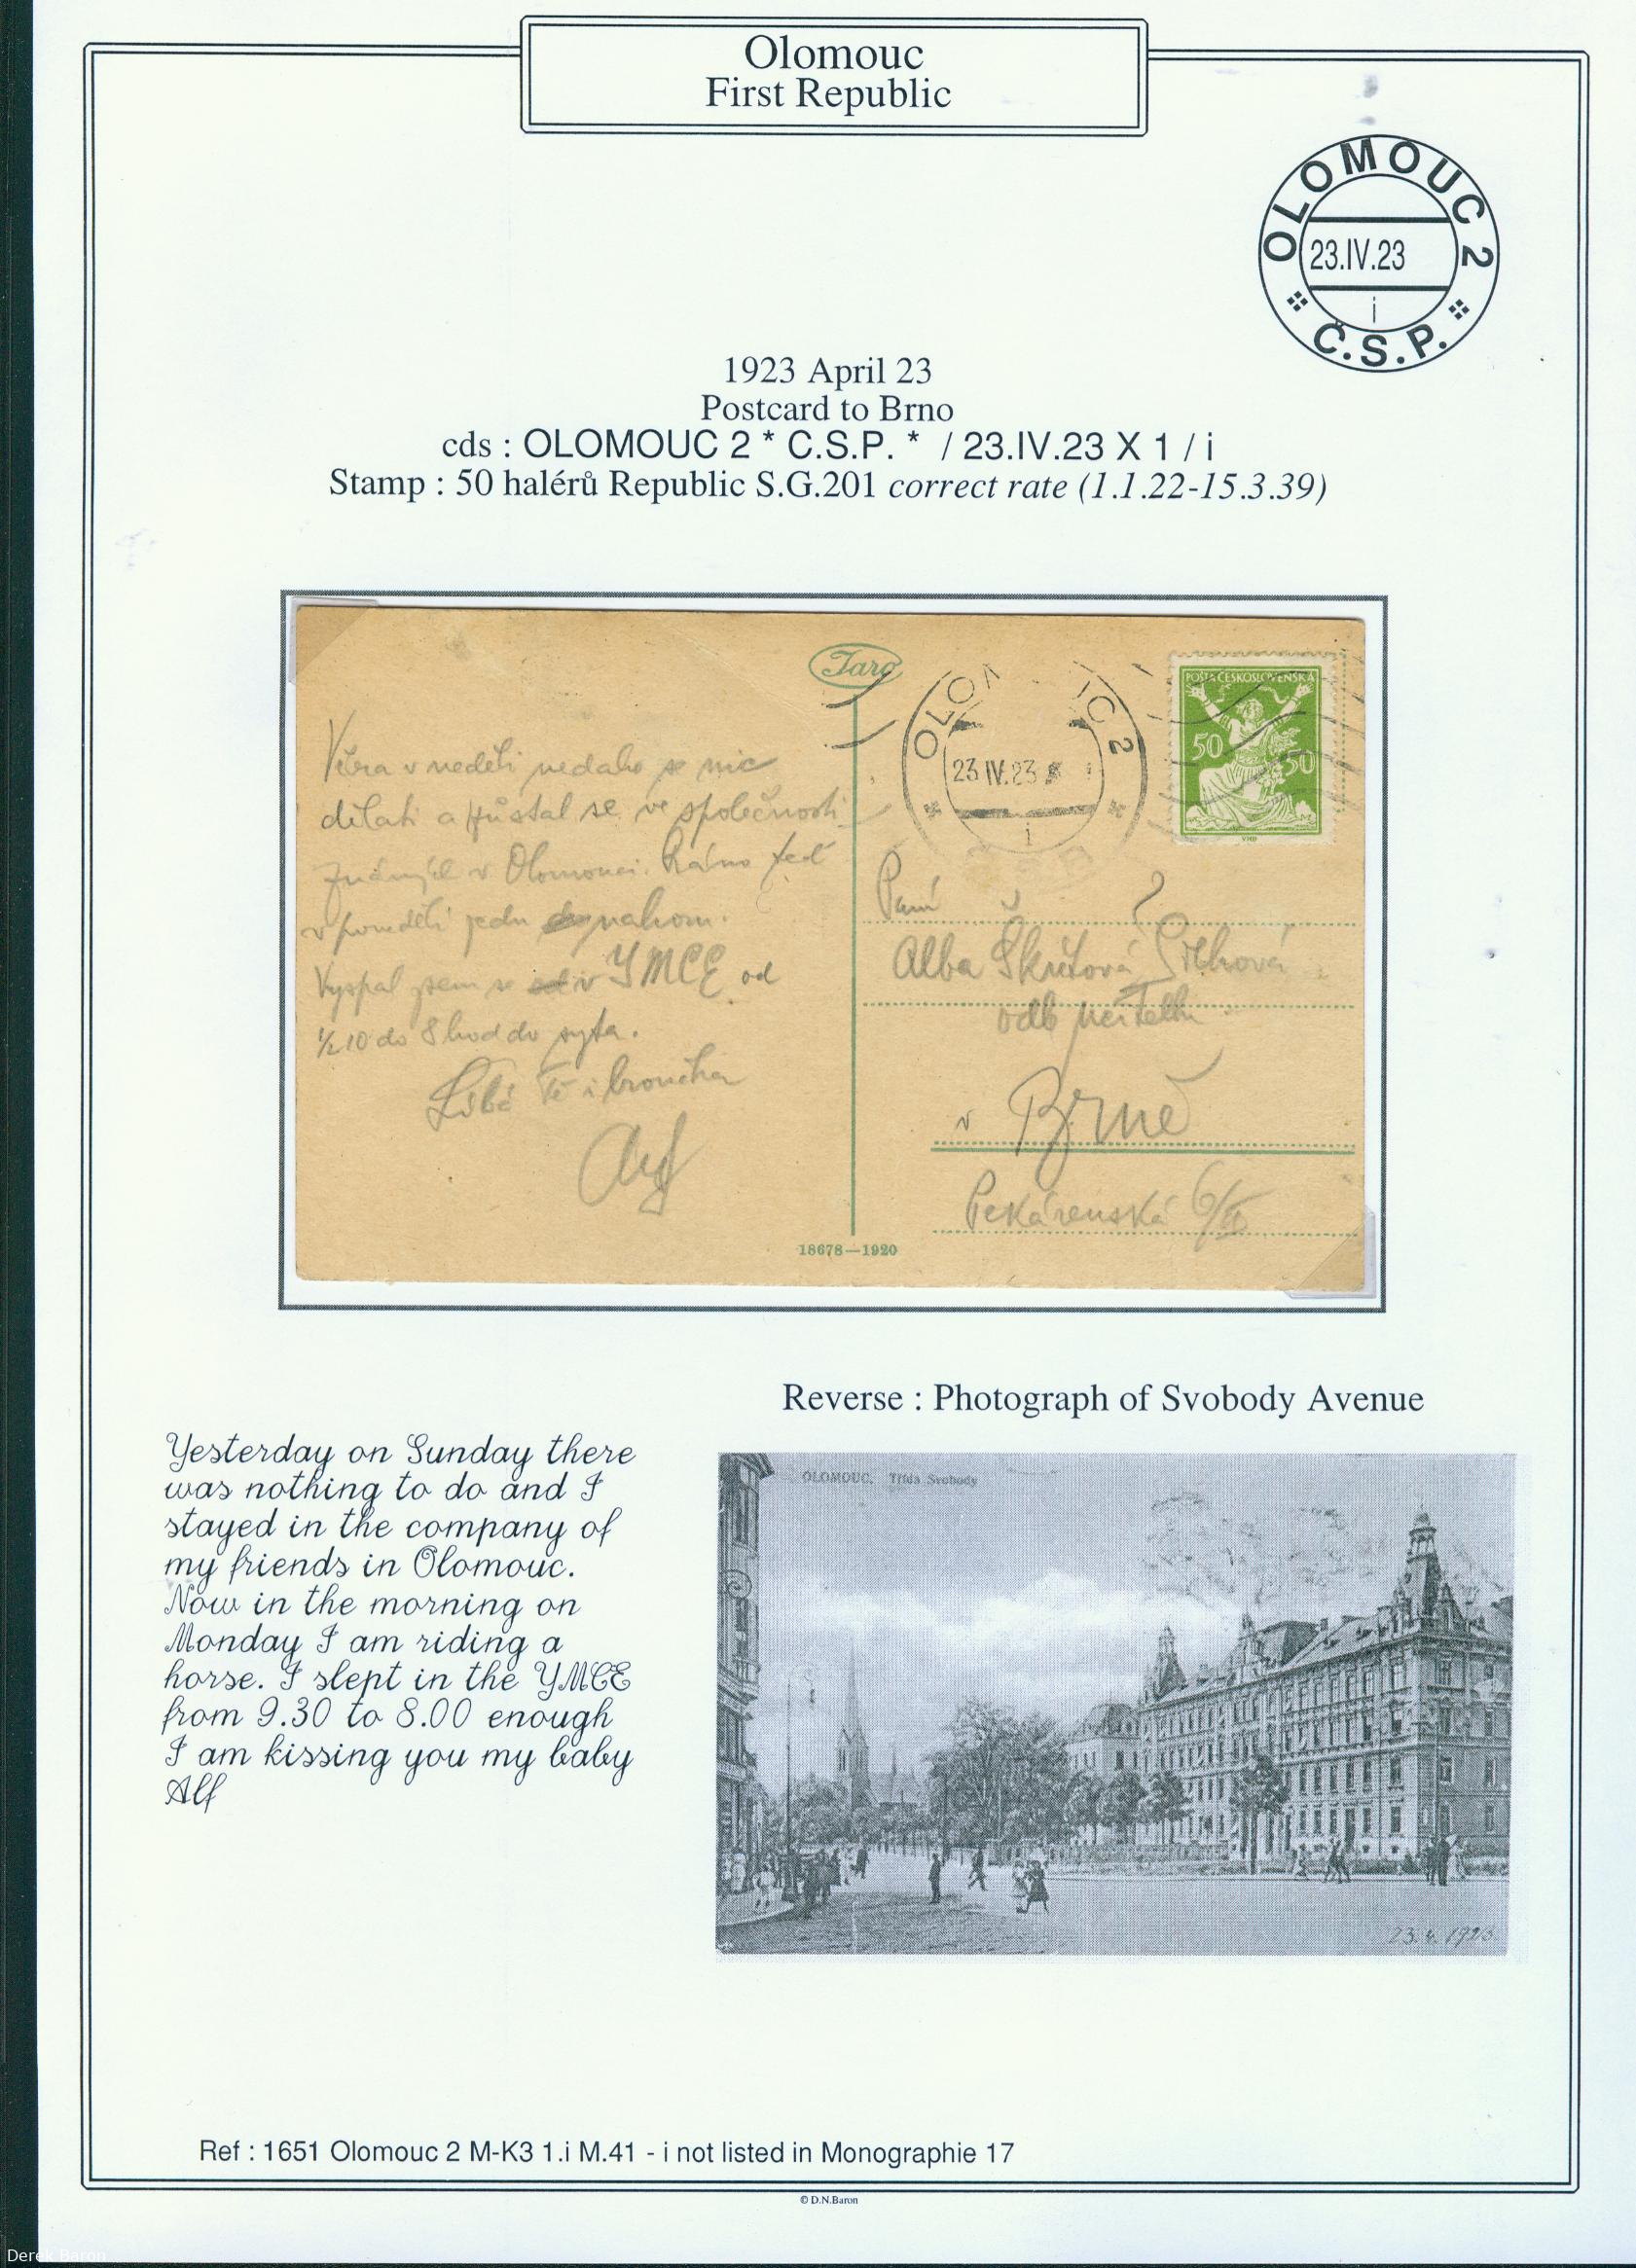 Olomouc
First Republic
OLOMOUC 2
23.IV.23
i
Č.S.P.
1923 April 23
Postcard to Brno
cds : OLOMOUC 2 * C.S.P. * / 23.IV.23 X 1 / i
Stamp : 50 halérů Republic S.G.201 correct rate (1.1.22-15.3.39)
Včera v neděli nedalo se nic
dělati a zůstal se ve společnosti
známých v Olomouci. Ráno teď
v pondělí jedu nahoru.
Vyspal jsem se v YMCE od
1/2 10 do 8 hod do syta.
Líbá Tě i broučka
Alf
18678—1920
OLOM UC 2
23 IV.23
i
POŠTA ČESKOSLOVENSKÁ
50 50
Paní
Alba
odb učitelka
v Brně
Pekárenská 6/II
Reverse : Photograph of Svobody Avenue
Yesterday on Sunday there
was nothing to do and I
stayed in the company of
my friends in Olomouc.
Now in the morning on
Monday I am riding a
horse. I slept in the YMCE
from 9.30 to 8.00 enough
I am kissing you my baby
Alf
OLOMOUC. Třída Svobody
23.4.1923
Ref : 1651 Olomouc 2 M-K3 1.i M.41 - i not listed in Monographie 17
© D.N.Baron
Derek Baron